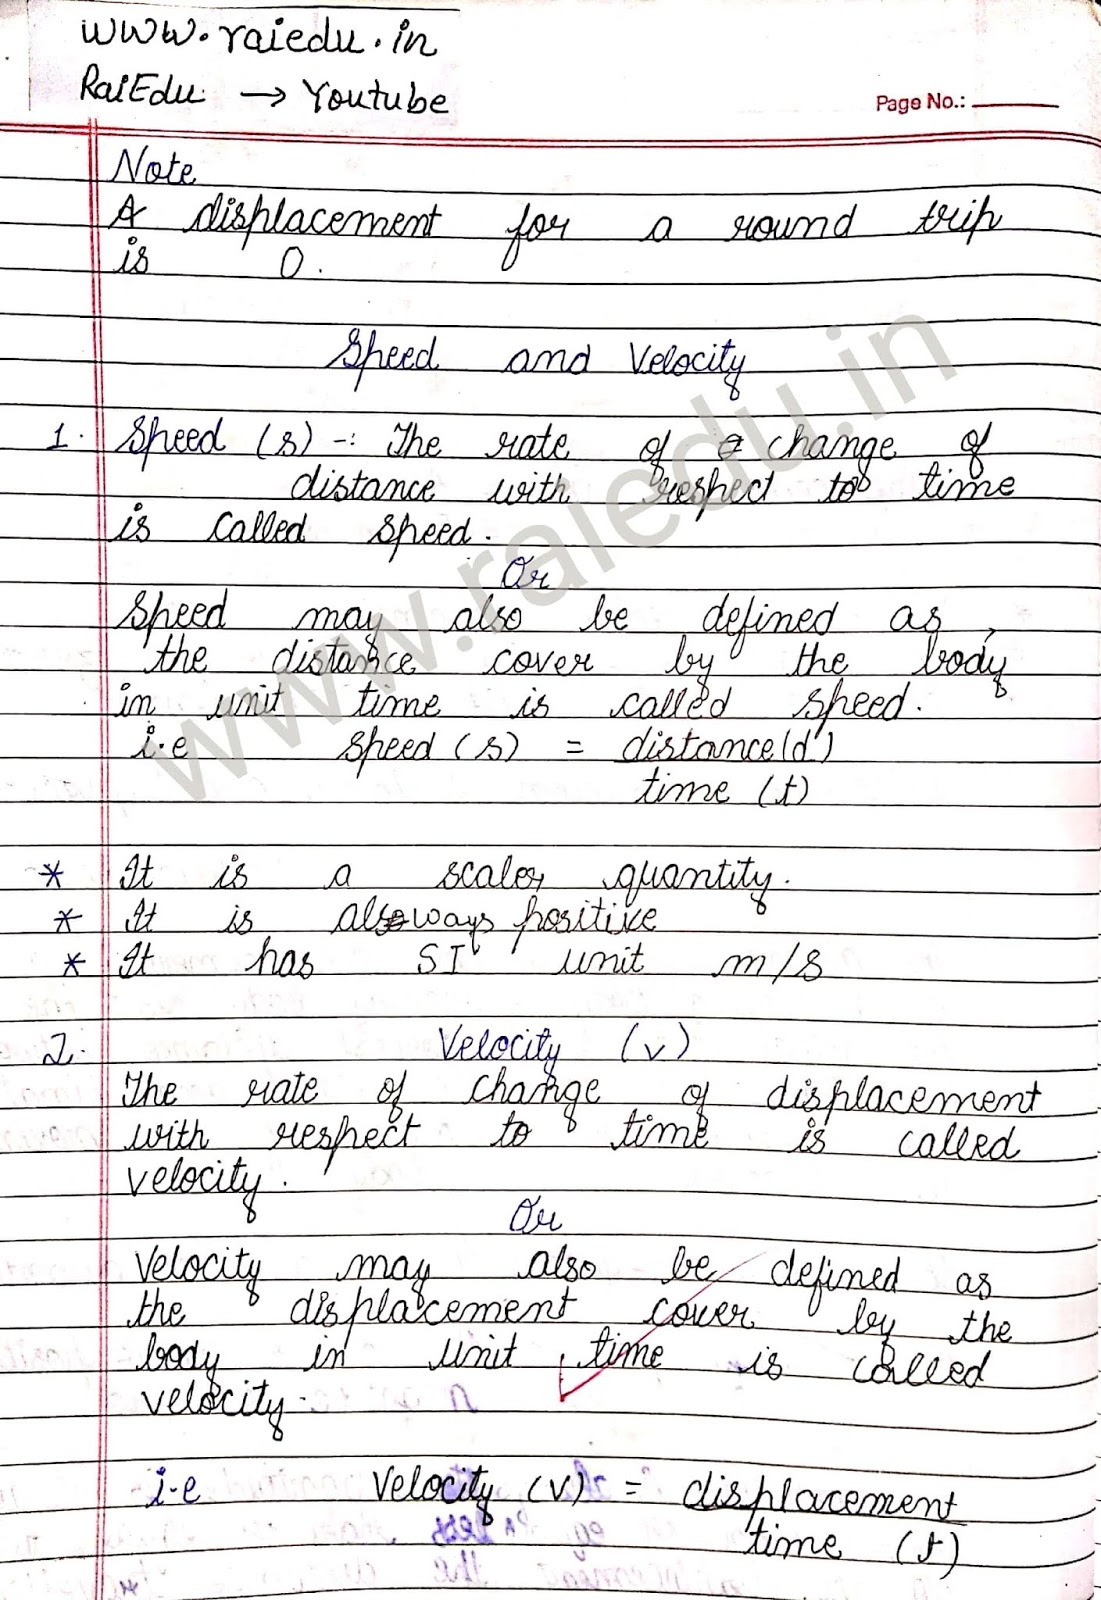 www.raiedu.in
RaiEdu → Youtube
Page No.:
Note
A displacement for a round trip
is 0.
Speed and Velocity
1. Speed (s) -: The rate of change of
distance with respect to time
is called speed.
Or
Speed may also be defined as,
the distance cover by the body
in unit time is called speed.
i.e speed (s) = distance (d)
time (t)
* It is a scaler quantity.
* It is always positive
* It has SI unit m/s
2. Velocity (v)
The rate of change of displacement
with respect to time is called
velocity.
Or
Velocity may also be defined as
the displacement cover by the
body in unit time is called
velocity.
i.e Velocity (v) = displacement
time (t)
www.raiedu.in